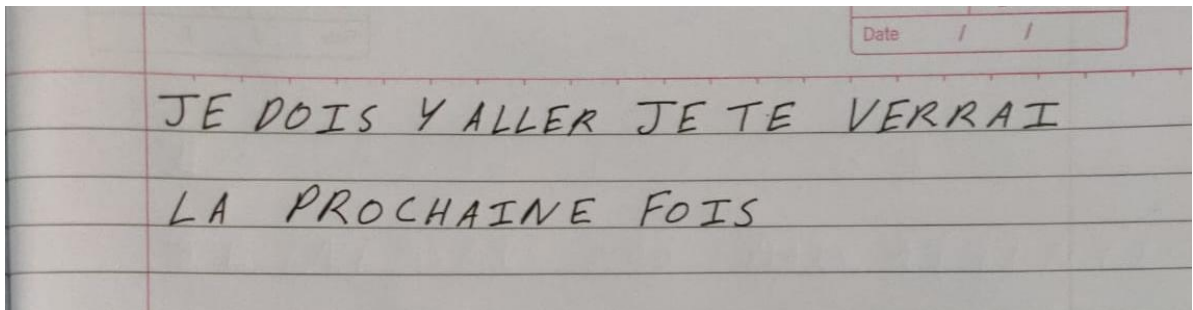 Date / /
JE DOIS Y ALLER JE TE VERRAI
LA PROCHAINE FOIS